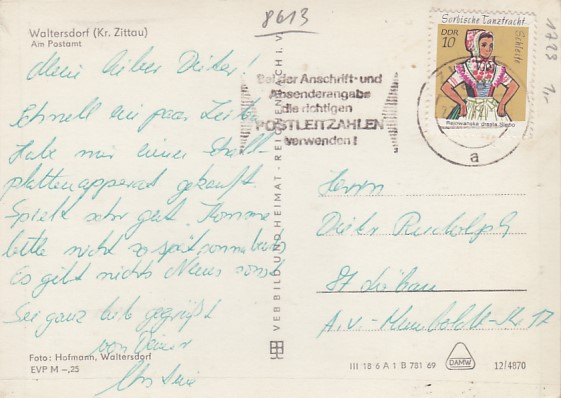 8613
1723
Waltersdorf (Kr. Zittau)
Am Postamt
Mein lieber Dieter
Schnell ein paar Zeilen
Habe mir einen Schall-
plattenapparat gekauft.
Spielt sehr gut Komme
bitte nicht so spät sonnabends
Es gibt nichts Neues sonst
Sei ganz lieb gegrüßt
von Deiner
Foto: Hofmann, Waltersdorf
EVP M –,25
VEB BILD UND HEIMAT · REICHENBACH I. V.
Bei der Anschrift- und
Absenderangabe
die richtigen
POSTLEITZAHLEN
verwenden!
a
Sorbische Tanztracht
Schleife
DDR
10
Herrn
Dieter Rudolph
87 Löbau
A.-v.-Humboldt-Str. 17
III 18 6 A 1 B 781 69
DAMW
12/4870